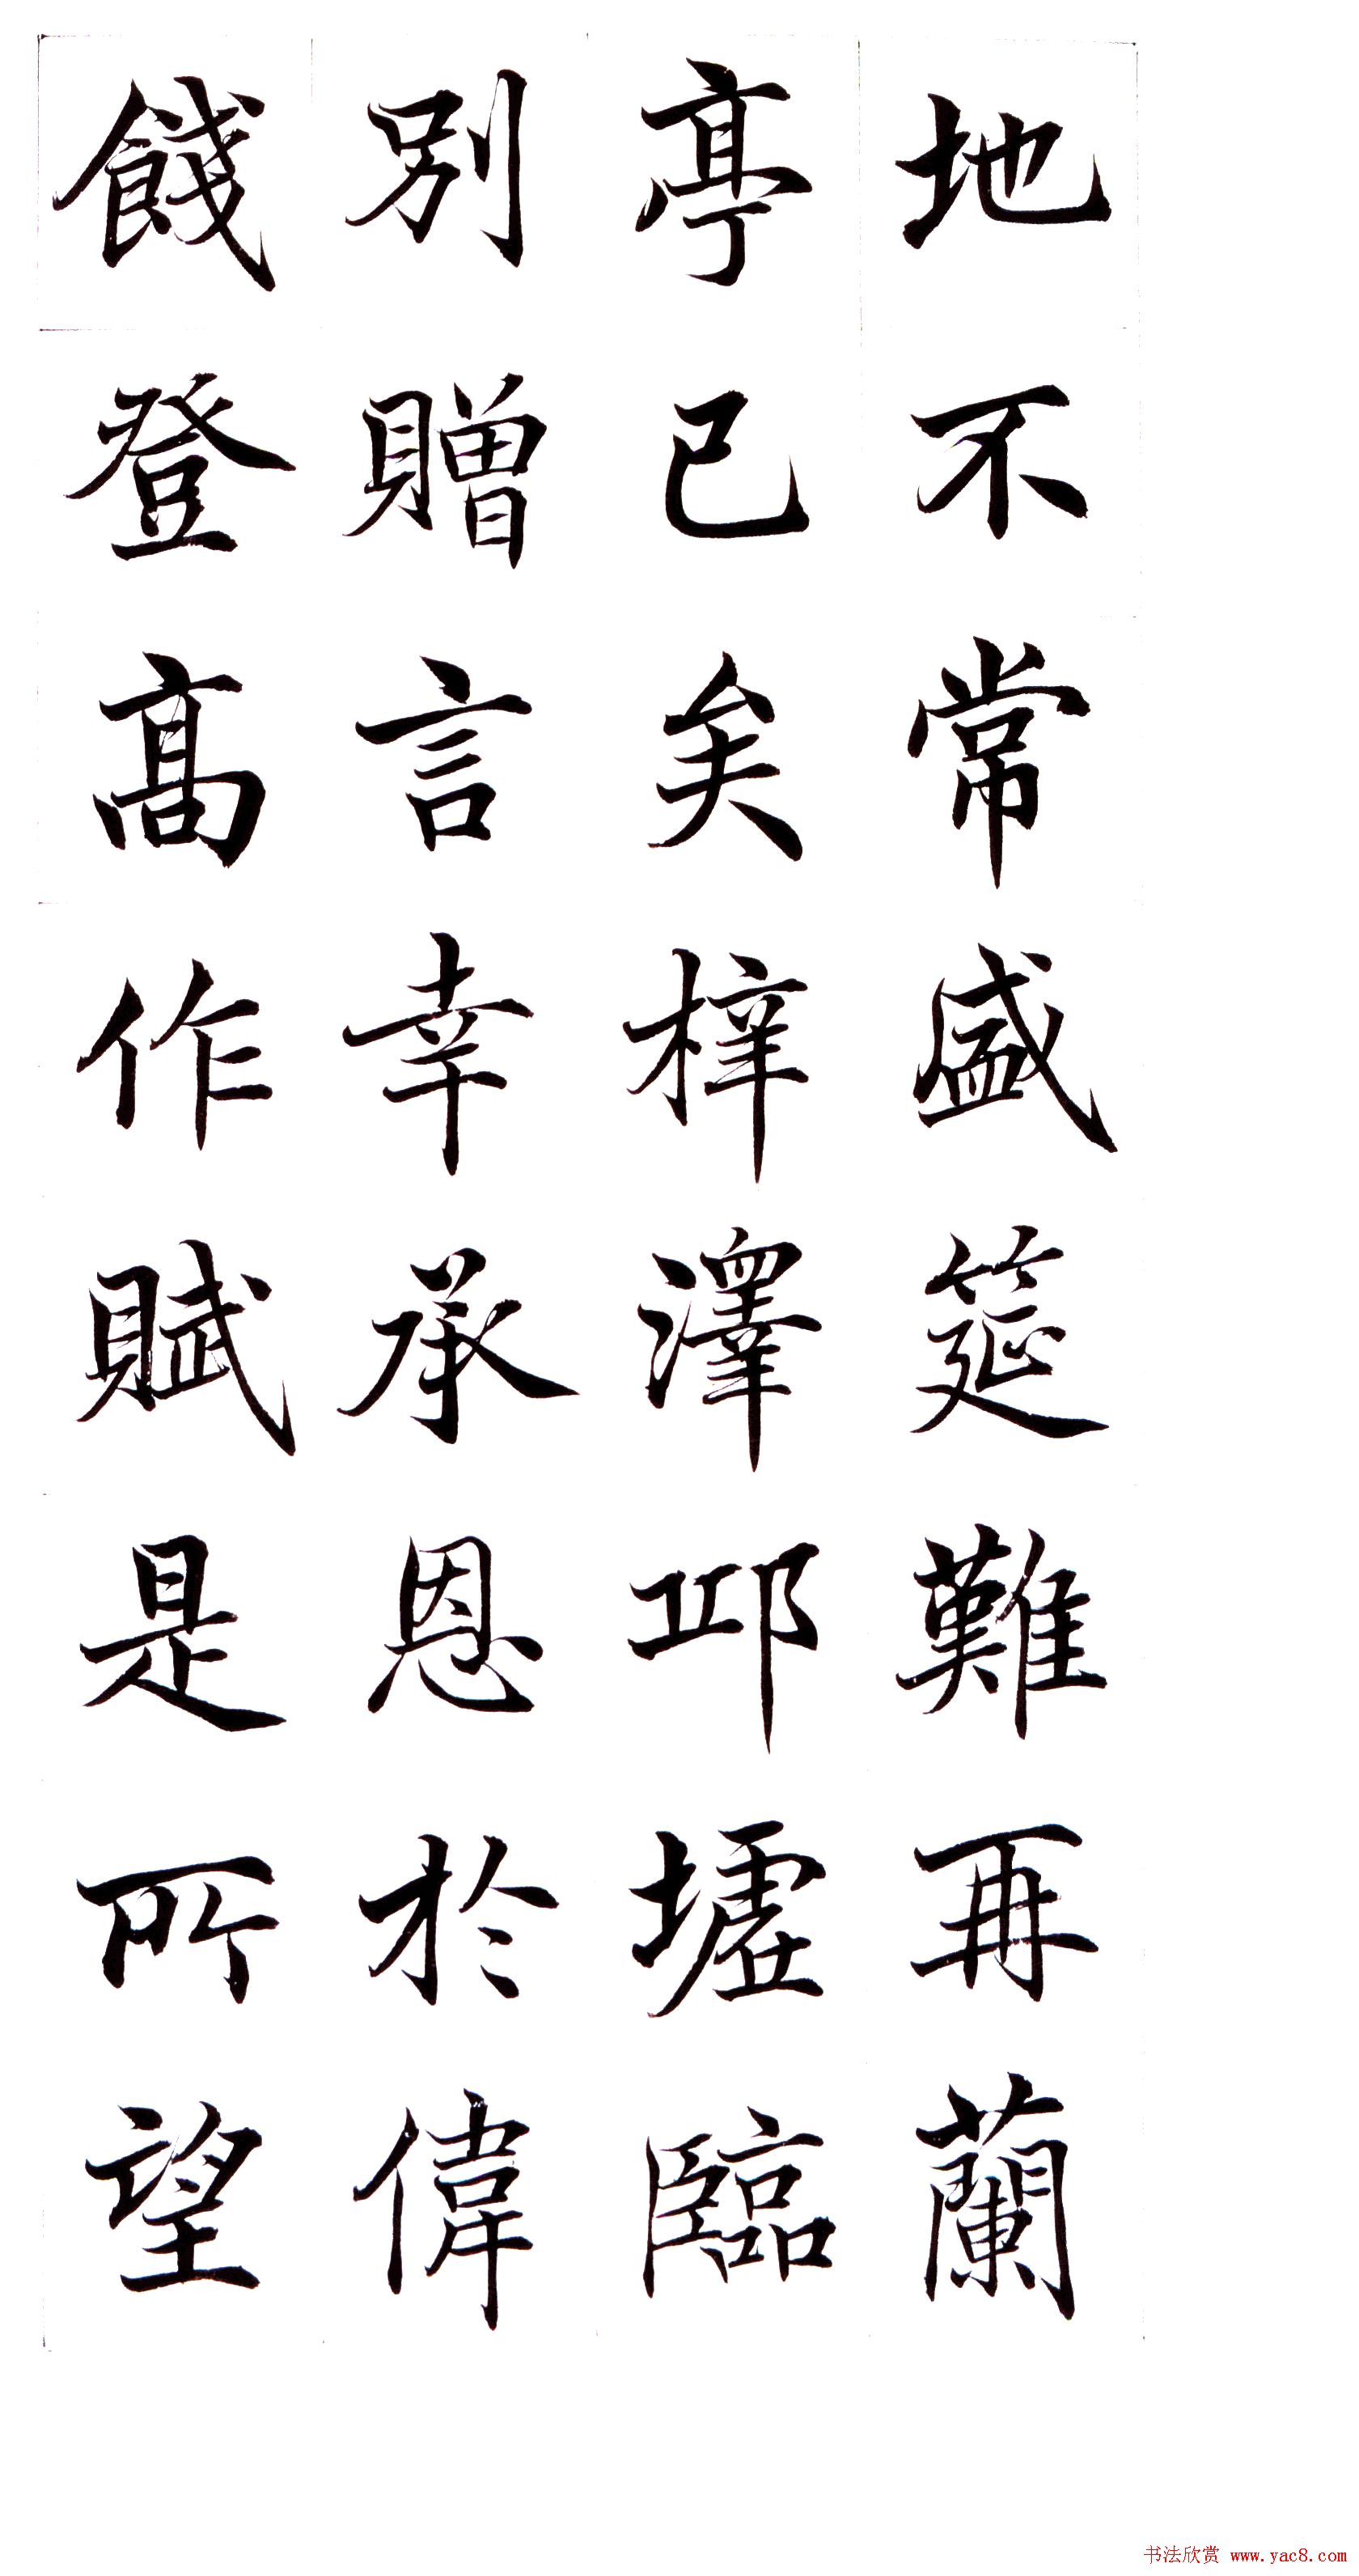 地不常盛筵難再蘭
亭已矣梓澤邱墟臨
別贈言幸承恩於偉
餞登高作賦是所望
书法欣赏 www.yac8.com